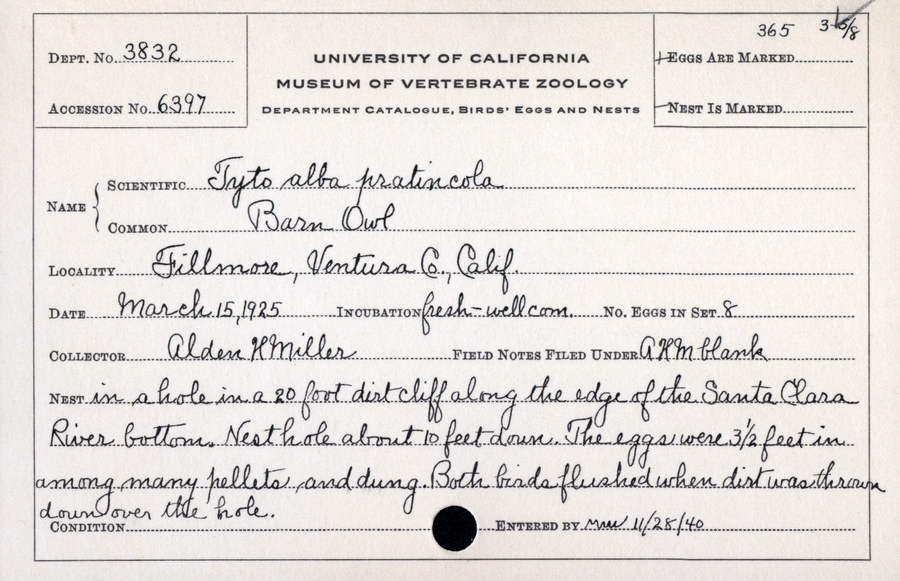 365 3-5/8
DEPT. No. 3832
UNIVERSITY OF CALIFORNIA
EGGS ARE MARKED
MUSEUM OF VERTEBRATE ZOOLOGY
ACCESSION No. 6397
DEPARTMENT CATALOGUE, BIRDS' EGGS AND NESTS
NEST IS MARKED
NAME
SCIENTIFIC Tyto alba pratincola
COMMON Barn Owl
LOCALITY Fillmore, Ventura Co., Calif.
DATE March 15, 1925 INCUBATION fresh-well com. No. EGGS IN SET 8
COLLECTOR Alden H Miller FIELD NOTES FILED UNDER AHM blank
NEST in a hole in a 20 foot dirt cliff along the edge of the Santa Clara
River bottom. Nest hole about 10 feet down. The eggs were 3½ feet in
among many pellets and dung. Both birds flushed when dirt was thrown
down over the hole.
CONDITION ENTERED BY 11/28/40